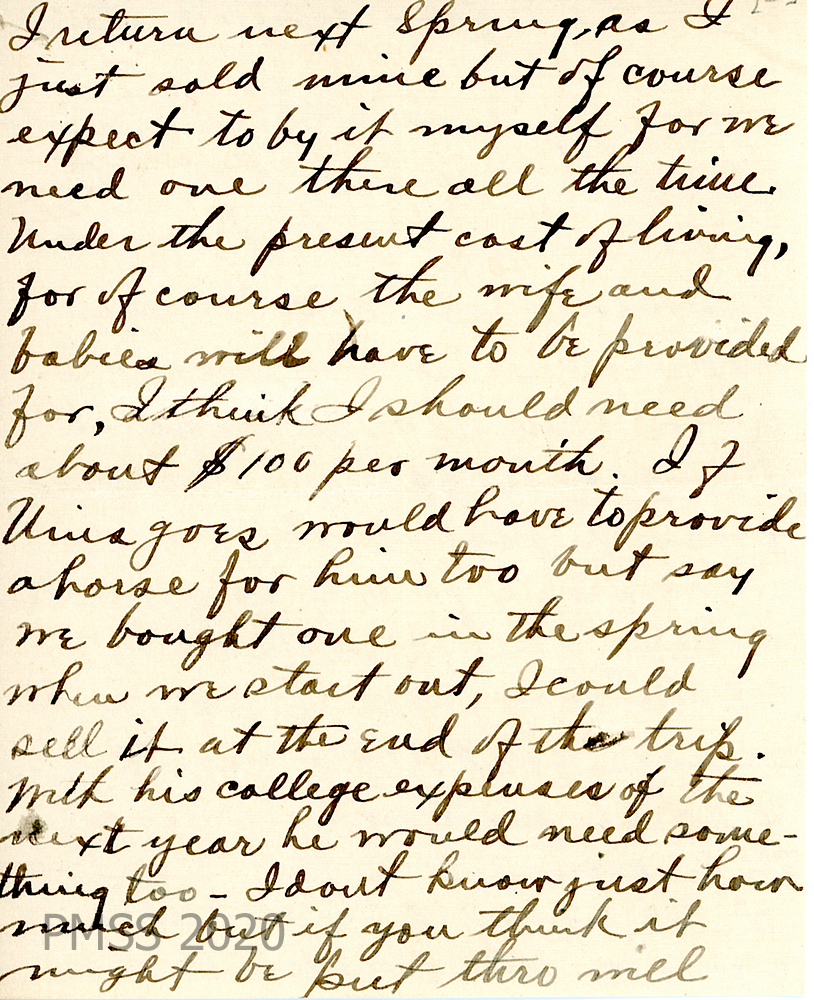 I return next Spring, as I
just sold mine but of course
expect to by it myself for we
need one there all the time.
Under the present cost of living,
for of course the wife and
babies will have to be provided
for, I think I should need
about $100 per month. If
goes would have to provide
a horse for him too but say
we bought one in the spring
when we start out, I could
sell it at the end of the trip.
With his college expenses of the
next year he would need some-
thing too - I dont know just how
much but if you think it
might be put thro will
PMSS 2020